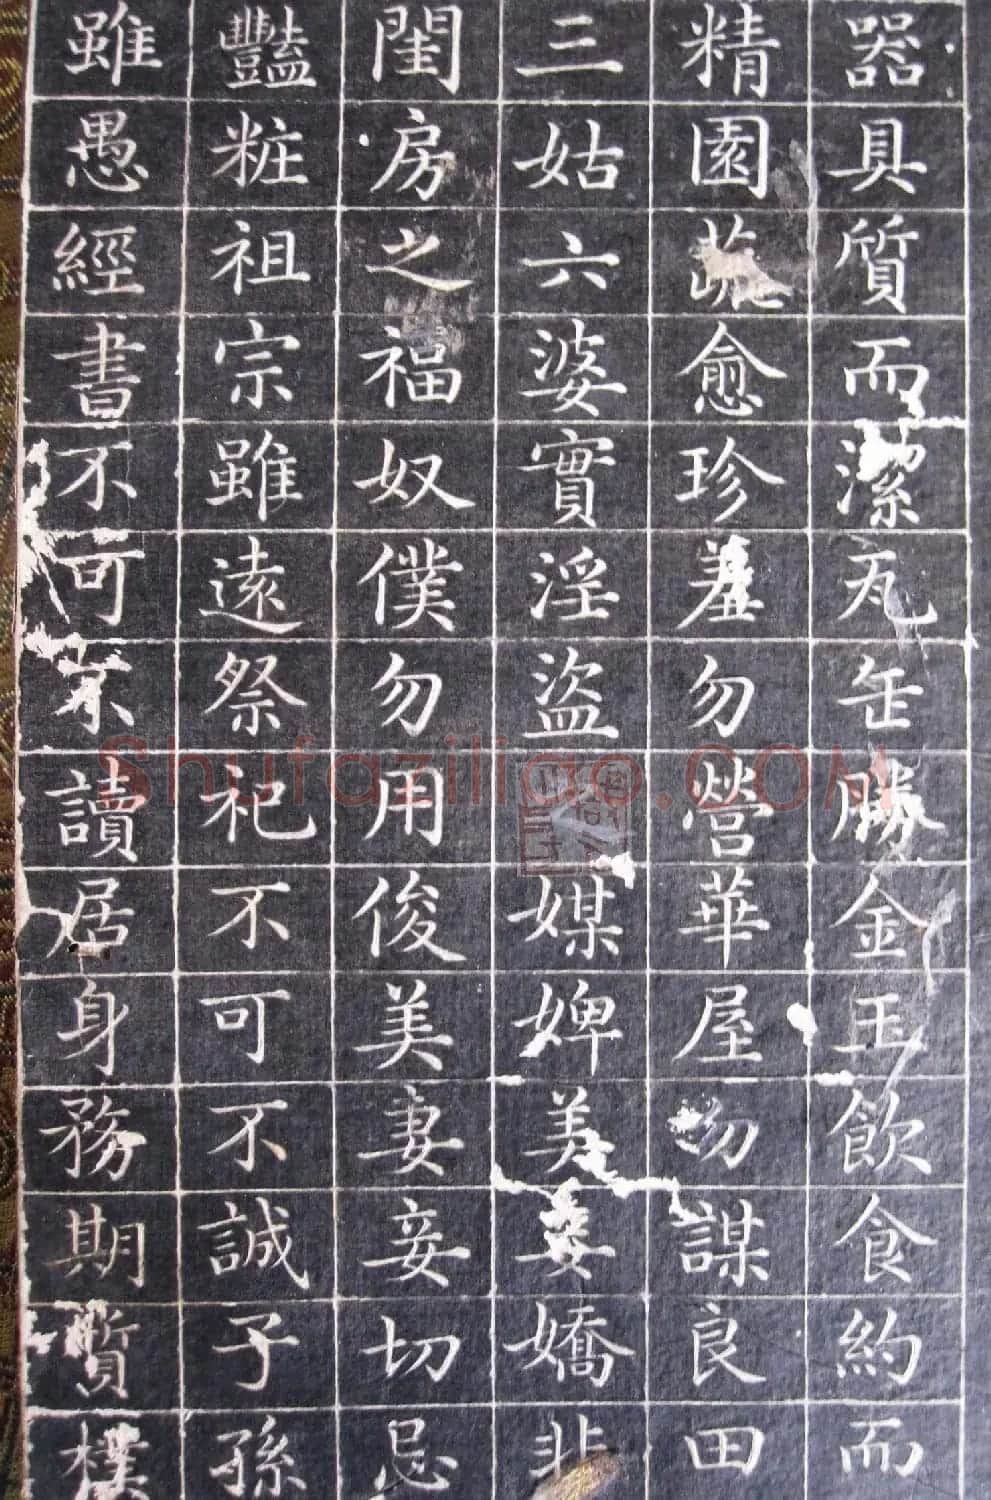 器具質而潔瓦缶勝金玉飲食約而
精園蔬愈珍羞勿營華屋勿謀良田
三姑六婆實淫盜媒婢美妾嬌非
閨房之福奴僕勿用俊美妻妾切忌
豔粧祖宗雖遠祭祀不可不誠子孫
雖愚經書不可不讀居身務期質樸
Shufaziliao.COM